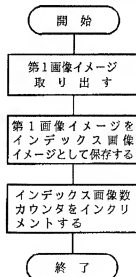 開始
第1画像イメージ
取り出す
第1画像イメージを
インデックス画像
イメージとして保存する
インデックス画像数
カウンタをインクリ
メントする
終了